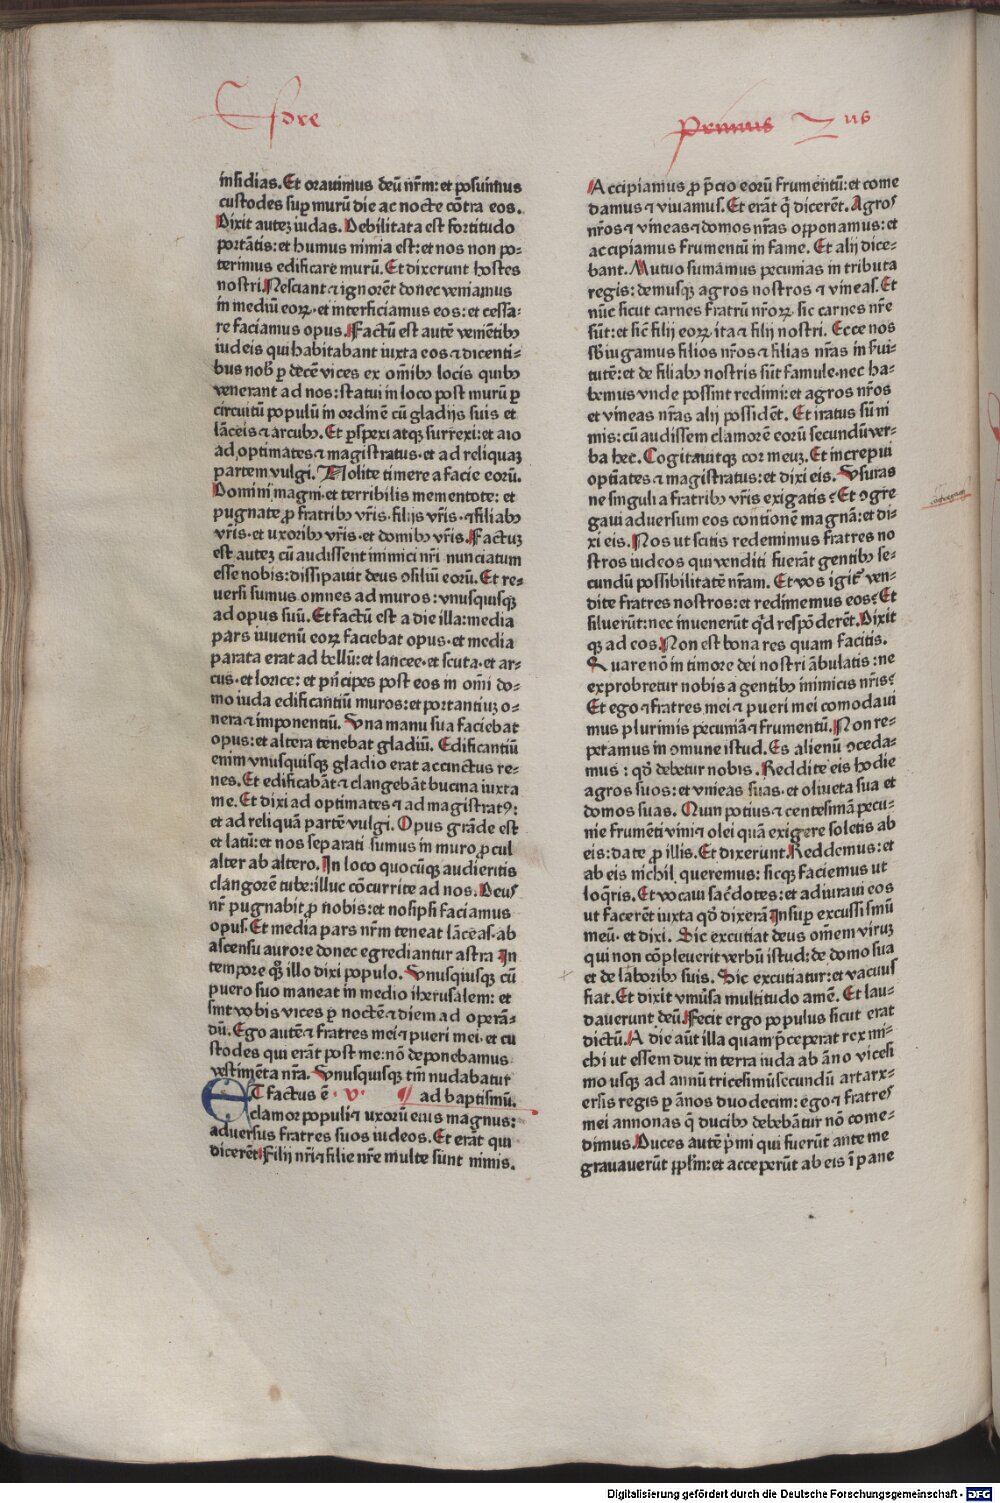 Esdre
primus 2us
insidias. Et orauimus deū nr̄m: et posuimus
custodes sup̱ murū die ac nocte cōtra eos.
Dixit autez iudas. Debilitata est fortitudo
portātis: et humus nimia est: et nos non po-
terimus edificare murū. Et dixerunt hostes
nostri. Nesciant ⁊ ignorēt donec veniamus
in mediū eoꝝ. et interficiamus eos: et cessa-
re faciamus opus. Factū est autē veniētibꝫ
iudeis qui habitabant iuxta eos ⁊ dicenti-
bus nob̄ ꝑ decē vices ex oīnibꝫ locis quibꝫ
venerant ad nos: statui in loco post murū ꝑ
circuitū populū in ordinē cū gladijs suis et
lāceis ⁊ arcubꝫ. Et ꝑspexi atqꝫ surrexi: et aio
ad optimates ⁊ magistratus. et ad reliquaꝫ
partem vulgi. Nolite timere a facie eorū.
Domini magni. et terribilis mementote: et
pugnate ꝓ fratribꝫ vr̄is. filijs vr̄is. ⁊ filiabꝫ
vr̄is. et uxoribꝫ vr̄is. et domibꝫ vr̄is. Factuꝫ
est autez cū audissent inimici nr̄i nunciatum
esse nobis: dissipauit deus ꝯsiliū eorū. Et re-
uersi sumus omnes ad muros: vnusquisqꝫ
ad opus suū. Et factū est a die illa: media
pars iuuenū eoꝝ faciebat opus. et media
parata erat ad bellū: et lancee. et scuta. et ar-
cus. et lorice: et prī̄cipes post eos in om̄i do-
mo iuda edificantiū muros: et portantiuꝫ o-
nera ⁊ imponentiū. Vna manu sua faciebat
opus: et altera tenebat gladiū. Edificantiū
enim vnusquisqꝫ gladio erat accinctus re-
nes. Et edificabāt ⁊ clangebāt bucina iuxta
me. Et dixi ad optimates ⁊ ad magistratꝰ:
et ad reliquā partē vulgi. Opus grāde est
et latū: et nos separati sumus in muro ꝓcul
alter ab altero. In loco quocūqꝫ audieritis
clangorē tube: illuc cōcurrite ad nos. Deus
nr̄ pugnabit ꝓ nobis: et nosipsi faciamus
opus. Et media pars nr̄m teneat lāceas. ab
ascensu aurore donec egrediantur astra. In
tempore qꝫ illo dixi populo. Vnusquisqꝫ cū
puero suo maneat in medio iherusalem: et
sint vobis vices ꝑ noctē ⁊ diem ad operā-
dū. Ego autē ⁊ fratres mei ⁊ pueri mei. et cu
stodes qui erāt post me: nō deponebamus
vestimēta nr̄a. Vnusquisqꝫ tm̄ nudabatur
ET factus ē. v. ¶ ad baptismū.
clamor populi ⁊ uxorū eius magnus:
aduersus fratres suos iudeos. Et erāt qui
dicerēt. Filij nr̄i ⁊ filie nr̄e multe sunt nimis.
Accipiamus ꝓ p̄cio eorū frumentū: et come
damus ⁊ viuamus. Et erāt q̄ dicerēt. Agros
nr̄os ⁊ vineas ⁊ domos nr̄as opponamus: et
accipiamus frumentū in fame. Et alij dice-
bant. Mutuo sumamus pecunias in tributa
regis: demusqꝫ agros nostros ⁊ vineas. Et
nūc sicut carnes fratrū nr̄oꝝ. sic carnes nr̄e
sūt: et sic̄ filij eoꝝ. ita ⁊ filij nostri. Ecce nos
sb̄iugamus filios nr̄os ⁊ filias nr̄as in s̄ui-
tutē: et de filiabꝫ nostris sūt famule. nec ha-
bemus vnde possint redimi: et agros nr̄os
et vineas nr̄as alij possidēt. Et iratus sū ni
mis: cū audissem clamorē eorū secundū ver-
ba hec. Cogitauitqꝫ cor meuꝫ. Et increpui
optiātes ⁊ magistratus: et dixi eis. Vsuras
ne singuli a fratribꝫ vr̄is exigatis? Et ꝯgre
gaui aduersum eos contionē magnā: et di-
xi eis. Nos ut scitis redemimus fratres no
stros iudeos qui venditi fuerāt gentibꝫ se-
cundū possibilitatē nr̄am. Et vos igit̄ ven-
dite fratres nostros: et redimemus eos? Et
siluerūt: nec inuenerūt qd̄ respōderēt. Dixit
qꝫ ad eos. Non est bona res quam facitis.
Quare nō in timore dei nostri ābulatis: ne
exprobretur nobis a gentibꝫ inimicis nr̄is?
Et ego ⁊ fratres mei ⁊ pueri mei comodaui
mus plurimis pecuniā ⁊ frumentū. Non re-
petamus in ꝯmune istud. Es alienū ꝯceda-
mus: qd̄ debetur nobis. Reddite eis hodie
agros suos: et vineas suas. et oliueta sua et
domos suas. Quin potius ⁊ centesimā pecu-
nie frumēti vini ⁊ olei quā exigere soletis ab
eis: date ꝓ illis. Et dixerunt. Reddemus: et
ab eis nichil queremus: sicqꝫ faciemus ut
loq̄ris. Et vocaui sac̄dotes: et adiuraui eos
ut facerēt iuxta qd̄ dixerā. Insuꝑ excussi sinū
meū. et dixi. Sic excutiat deus om̄em viruꝫ
qui non cōpleuerit verbū istud: de domo sua
et de laboribꝫ suis. Sic excutiatur: et vacuus
fiat. Et dixit vniūsa multitudo amē. Et lau-
dauerunt deū. Fecit ergo populus sicut erat
dictū. A die aūt illa quam p̄ceperat rex mi-
chi ut essem dux in terra iuda ab āno vicesi
mo usqꝫ ad annū tricesimūsecundū artarx-
ersis regis ꝑ ānos duodecim: ego ⁊ fratres
mei annonas q̄ ducibꝫ debebātur nō come-
dimus. Duces autē p̄mi qui fuerūt ante me
grauauerūt ppl̄m: et acceperūt ab eis ī pane
Digitalisierung gefördert durch die Deutsche Forschungsgemeinschaft - DFG